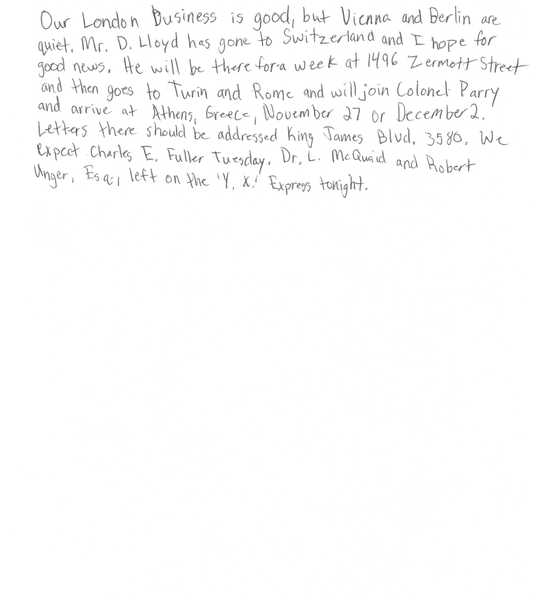 Our London Business is good, but Vienna and Berlin are
quiet. Mr. D. Lloyd has gone to Switzerland and I hope for
good news. He will be there for a week at 1496 Zermott Street
and then goes to Turin and Rome and will join Colonel Parry
and arrive at Athens, Greece, November 27 or December 2.
Letters there should be addressed King James Blvd. 3580. We
expect Charles E. Fuller Tuesday. Dr. L. McQuaid and Robert
Unger, Esq., left on the 'Y. X.' Express tonight.